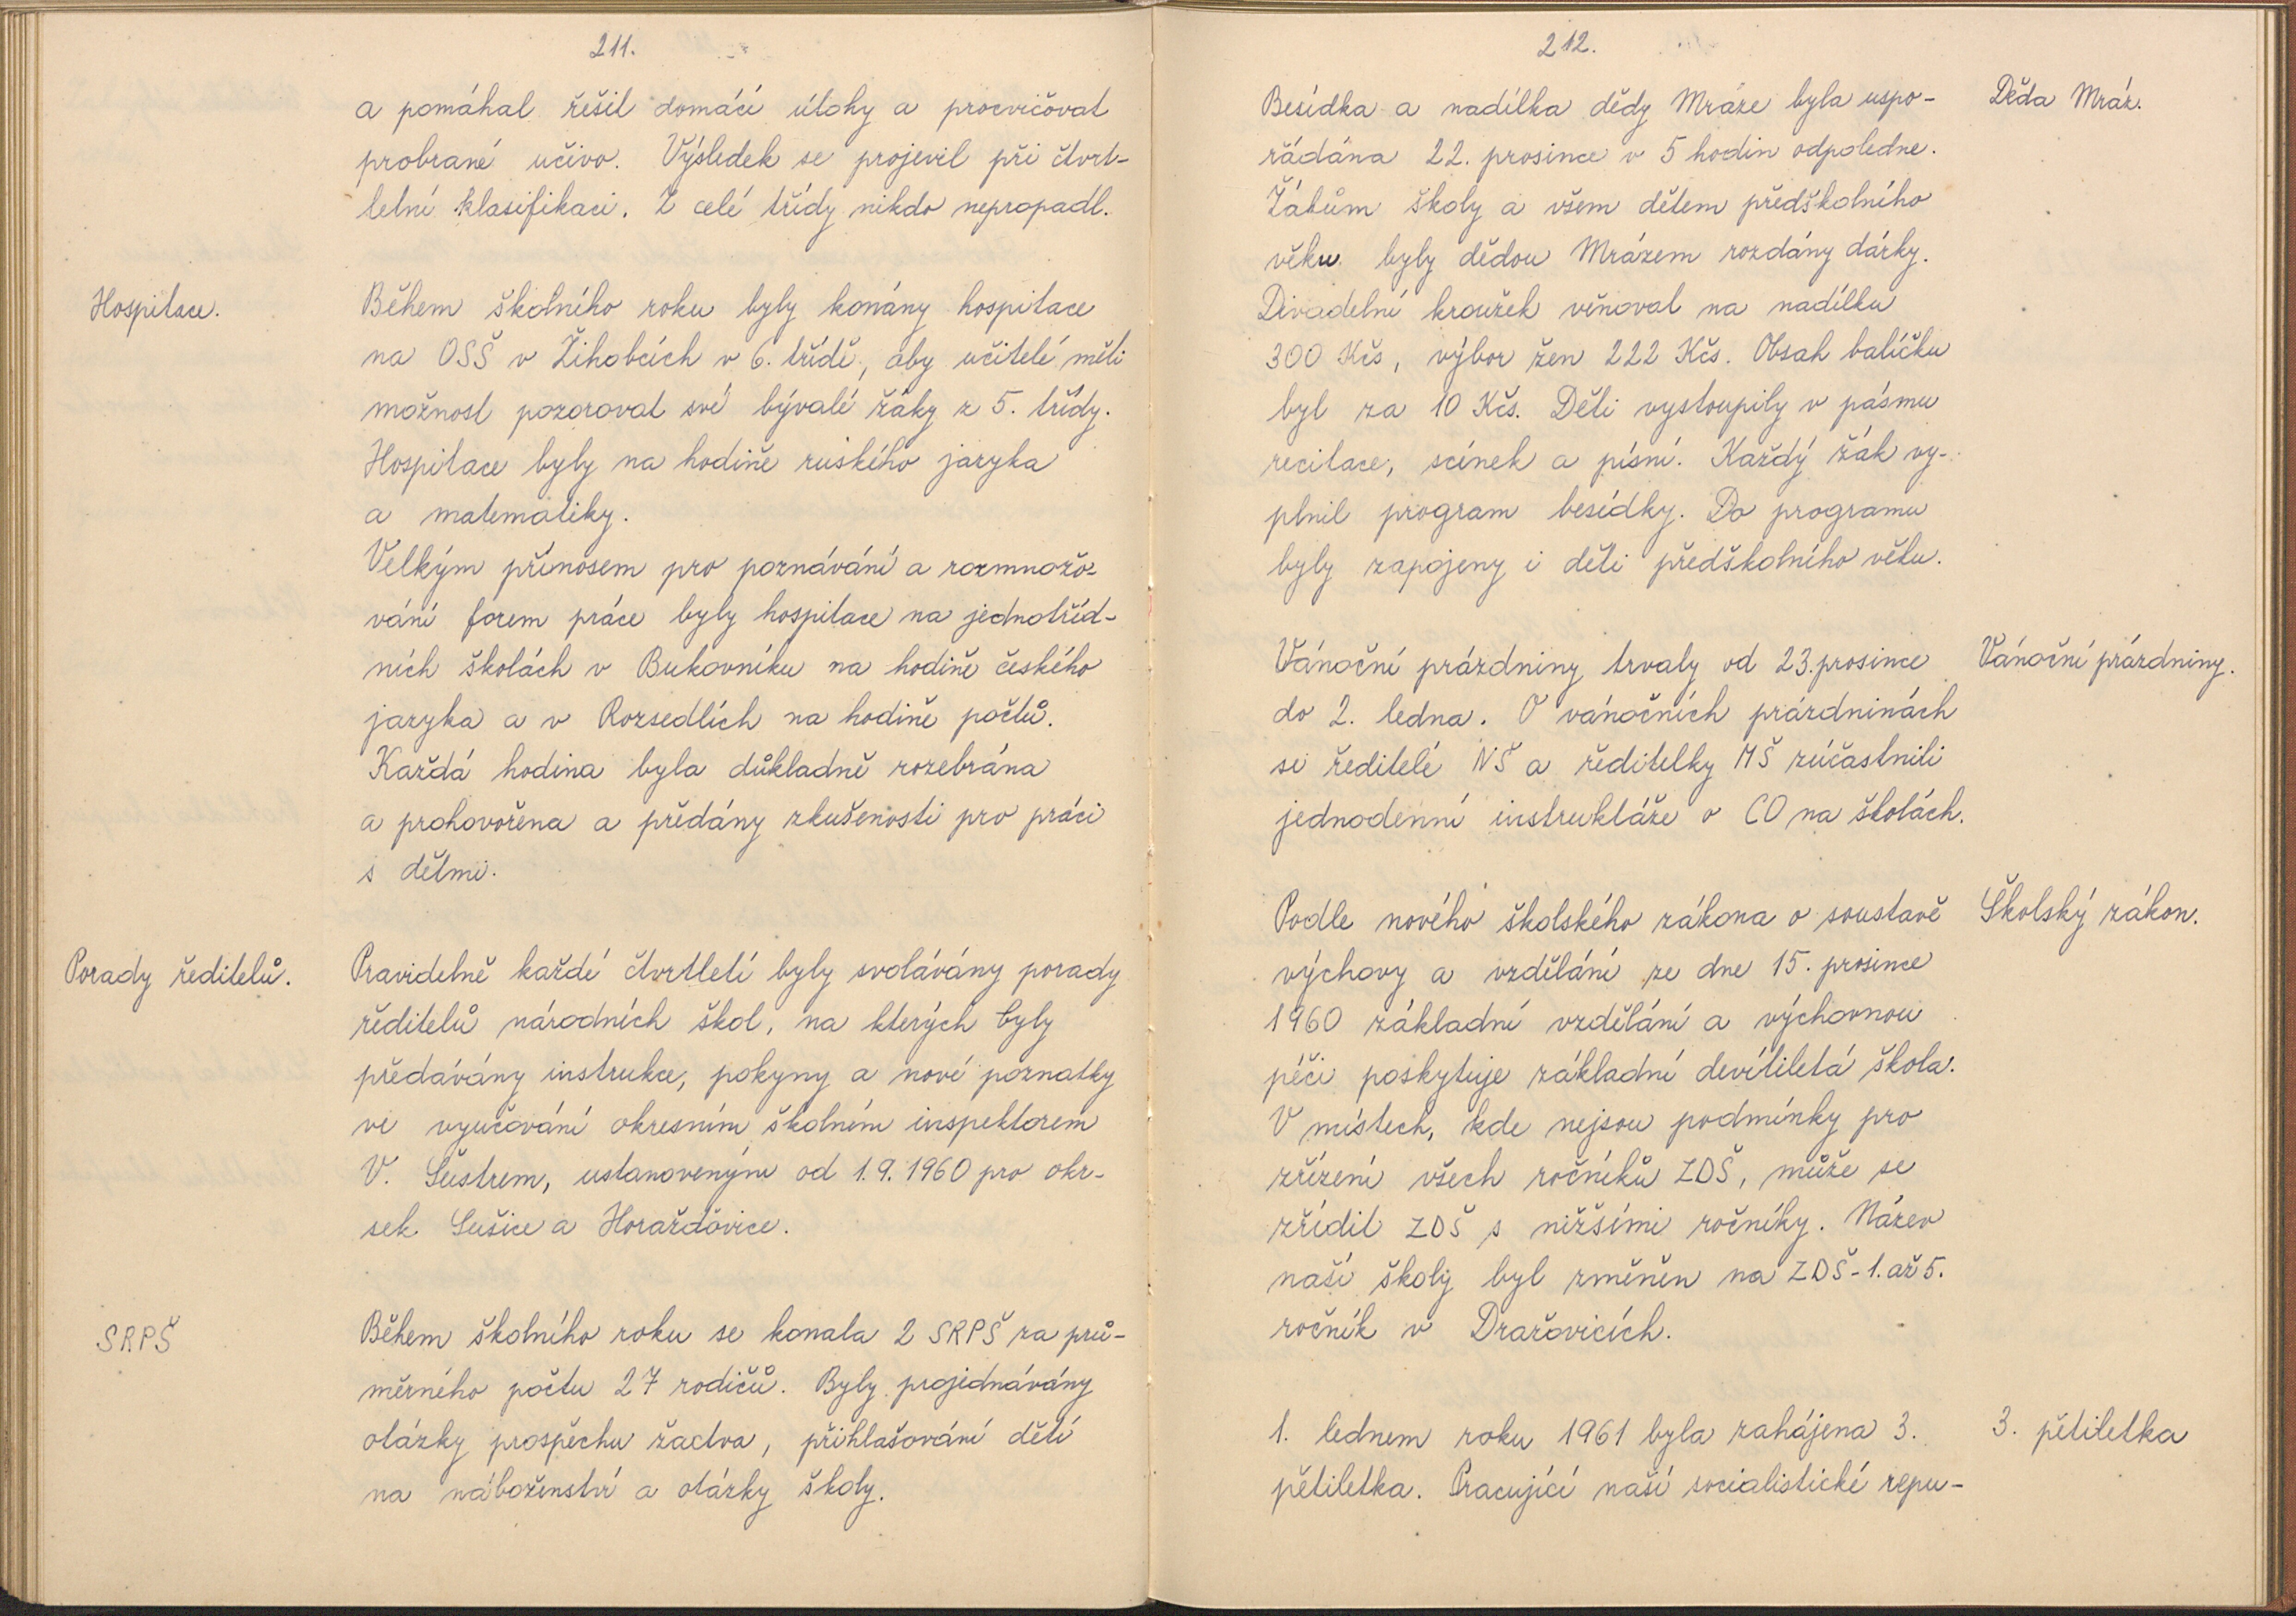 211.
a pomáhal řešit domácí úlohy a procvičovat
probrané učivo. Výsledek se projevil při čtvrt-
letní klasifikaci. Z celé třídy nikdo nepropadl.
Hospitace.
Během školního roku byly konány hospitace
na OSŠ v Žihobcích v 6. třídě, aby učitelé měli
možnost pozorovat své bývalé žáky z 5. třídy.
Hospitace byly na hodině ruského jazyka
a matematiky.
Velkým přínosem pro poznávání a rozmnožo-
vání forem práce byly hospitace na jednotříd-
ních školách v Bukovníku na hodině českého
jazyka a v Rozsedlích na hodině počtů.
Každá hodina byla důkladně rozebrána
a prohovořena a předány zkušenosti pro práci
s dětmi.
Porady ředitelů.
Pravidelně každé čtvrtletí byly svolávány porady
ředitelů národních škol, na kterých byly
předávány instrukce, pokyny a nové poznatky
ve vyučování okresním školním inspektorem
V. Šustrem, ustanoveným od 1.9.1960 pro okr-
sek Sušice a Horažďovice.
SRPŠ
Během školního roku se konala 2 SRPŠ za prů-
měrného počtu 27 rodičů. Byly projednávány
otázky prospěchu žactva, přihlašování dětí
na náboženství a otázky školy.
212.
Besídka a nadílka dědy Mráze byla uspo-
Děda Mráz.
řádána 22. prosince v 5 hodin odpoledne.
Žákům školy a všem dětem předškolního
věku byly dědou Mrázem rozdány dárky.
Divadelní kroužek věnoval na nadílku
300 Kčs, výbor žen 222 Kčs. Obsah balíčku
byl za 10 Kčs. Děti vystoupily v pásmu
recitace, scének a písní. Každý žák vy-
plnil program besídky. Do programu
byly zapojeny i děti předškolního věku.
Vánoční prázdniny trvaly od 23.prosince
Vánoční prázdniny.
do 2. ledna. O vánočních prázdninách
se ředitelé NŠ a ředitelky MŠ zúčastnili
jednodenní instruktáže o CO na školách.
Podle nového školského zákona o soustavě
Školský zákon.
výchovy a vzdělání ze dne 15. prosince
1960 základní vzdělání a výchovnou
péči poskytuje základní devítiletá škola.
V místech, kde nejsou podmínky pro
zřízení všech ročníků ZDŠ, může se
zřídit ZDŠ s nižšími ročníky. Název
naší školy byl změněn na ZDŠ-1. až 5.
ročník v Dražovicích.
1. lednem roku 1961 byla zahájena 3.
3. pětiletka
pětiletka. Pracující naší socialistické repu-